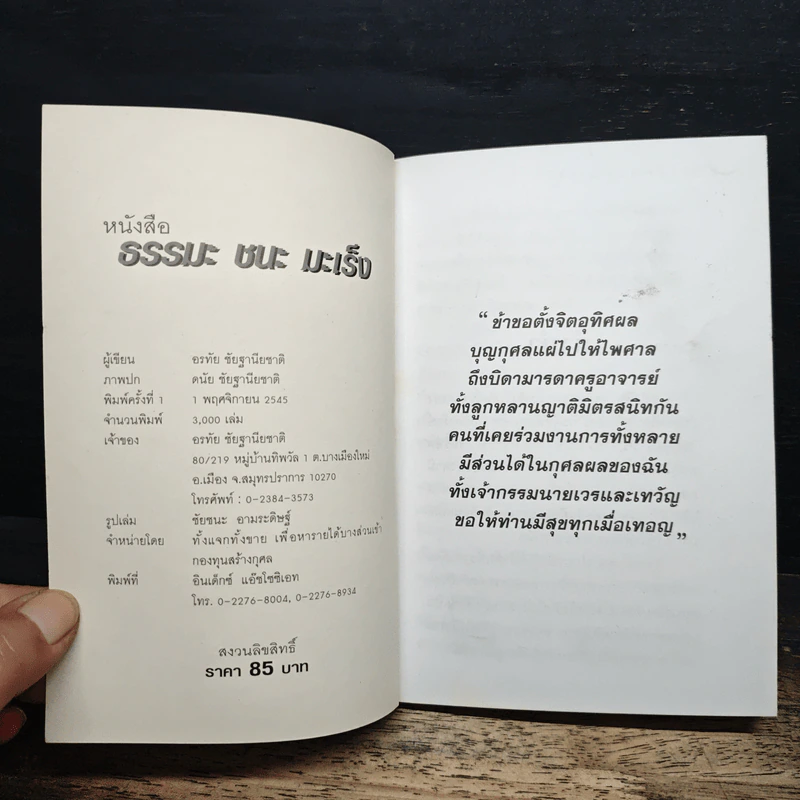 หนังสือ
ธรรมะ ชนะ มะเร็ง
ผู้เขียน อรทัย ชัยฐานียชาติ
ภาพปก ดนัย ชัยฐานียชาติ
พิมพ์ครั้งที่ 1 1 พฤศจิกายน 2545
จำนวนพิมพ์ 3,000 เล่ม
เจ้าของ อรทัย ชัยฐานียชาติ
80/219 หมู่บ้านทิพวัล 1 ต.บางเมืองใหม่
อ.เมือง จ.สมุทรปราการ 10270
โทรศัพท์ : 0-2384-3573
รูปเล่ม ชัยชนะ อามระดิษฐ์
จำหน่ายโดย ทั้งแจกทั้งขาย เพื่อหารายได้บางส่วนเข้า
กองทุนสร้างกุศล
พิมพ์ที่ อินเด็กซ์ แอ๊ซโซซิเอท
โทร. 0-2276-8004, 0-2276-8934
สงวนลิขสิทธิ์
ราคา 85 บาท
“ ข้าขอตั้งจิตอุทิศผล
บุญกุศลแผ่ไปให้ไพศาล
ถึงบิดามารดาครูอาจารย์
ทั้งลูกหลานญาติมิตรสนิทกัน
คนที่เคยร่วมงานการทั้งหลาย
มีส่วนได้ในกุศลผลของฉัน
ทั้งเจ้ากรรมนายเวรและเทวัญ
ขอให้ท่านมีสุขทุกเมื่อเทอญ „